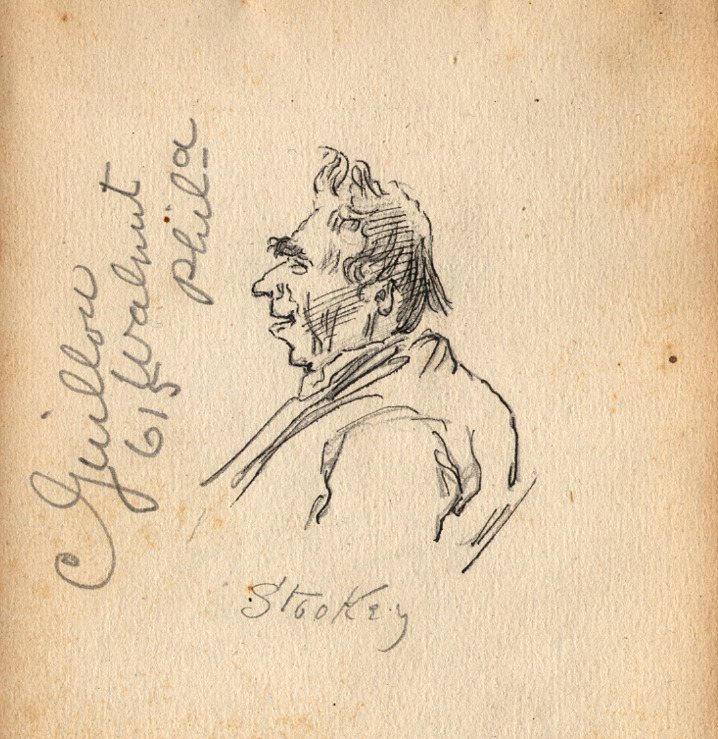 Guillou
615 Walnut
Phila
Stookey